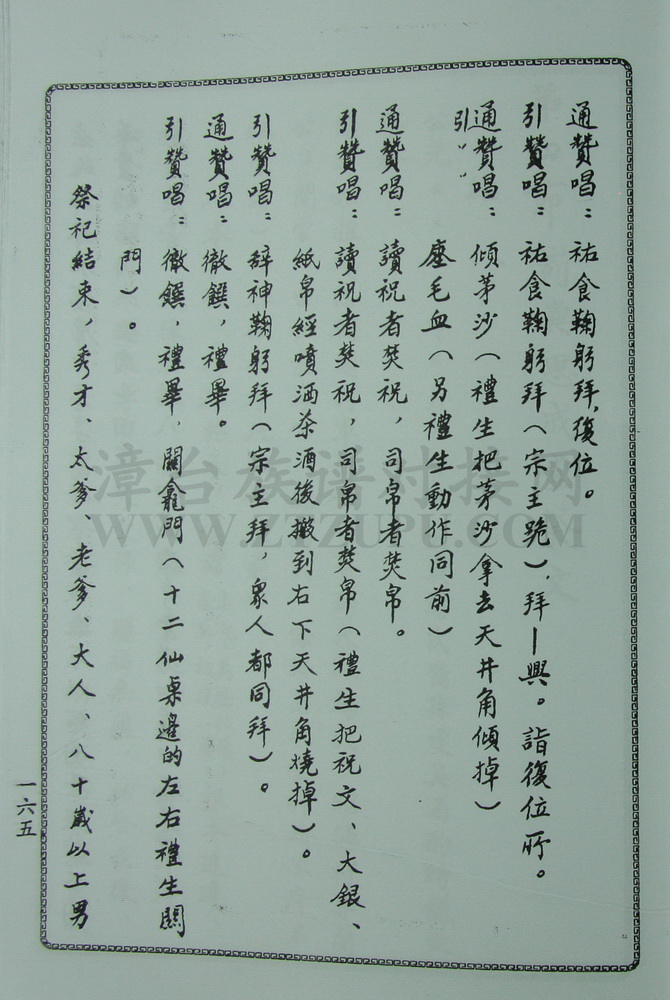 通贊唱：祐食鞠躬拜，復位。
引贊唱：祐食鞠躬拜（宗主跪），拜—興。詣復位所。
通贊唱：傾茅沙（禮生把茅沙拿去天井角傾掉）
引〃〃
塵毛血（另禮生動作同前）
通贊唱：讀祝者焚祝，司帛者焚帛。
引贊唱：讀祝者焚祝，司帛者焚帛（禮生把祝文、大銀、
紙帛經噴洒茶酒後搬到右下天井角燒掉）。
引贊唱：辞神鞠躬拜（宗主拜，眾人都同拜）。
通贊唱：徹饌，禮畢。
引贊唱：徹饌，禮畢，關龕門（十二仙桌邊的左右禮生關
門）。
祭祀結束，秀才、太爹、老爹、大人、八十歲以上男
一六五
漳台族谱对接网
WWW.ZTZUPU.COM